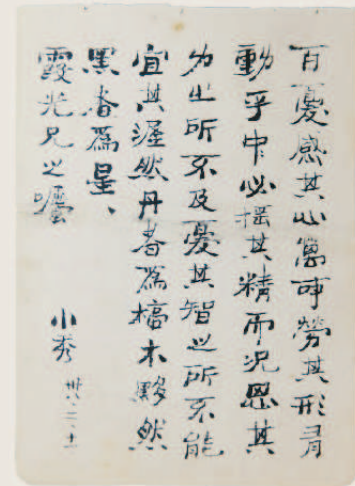 百憂感其心萬事勞其形有
動乎中必搖其精而況思其
力之所不及憂其智之所不能
宜其渥然丹者為槁木黟然
黑者為星、
霞光兄之囑
小秀